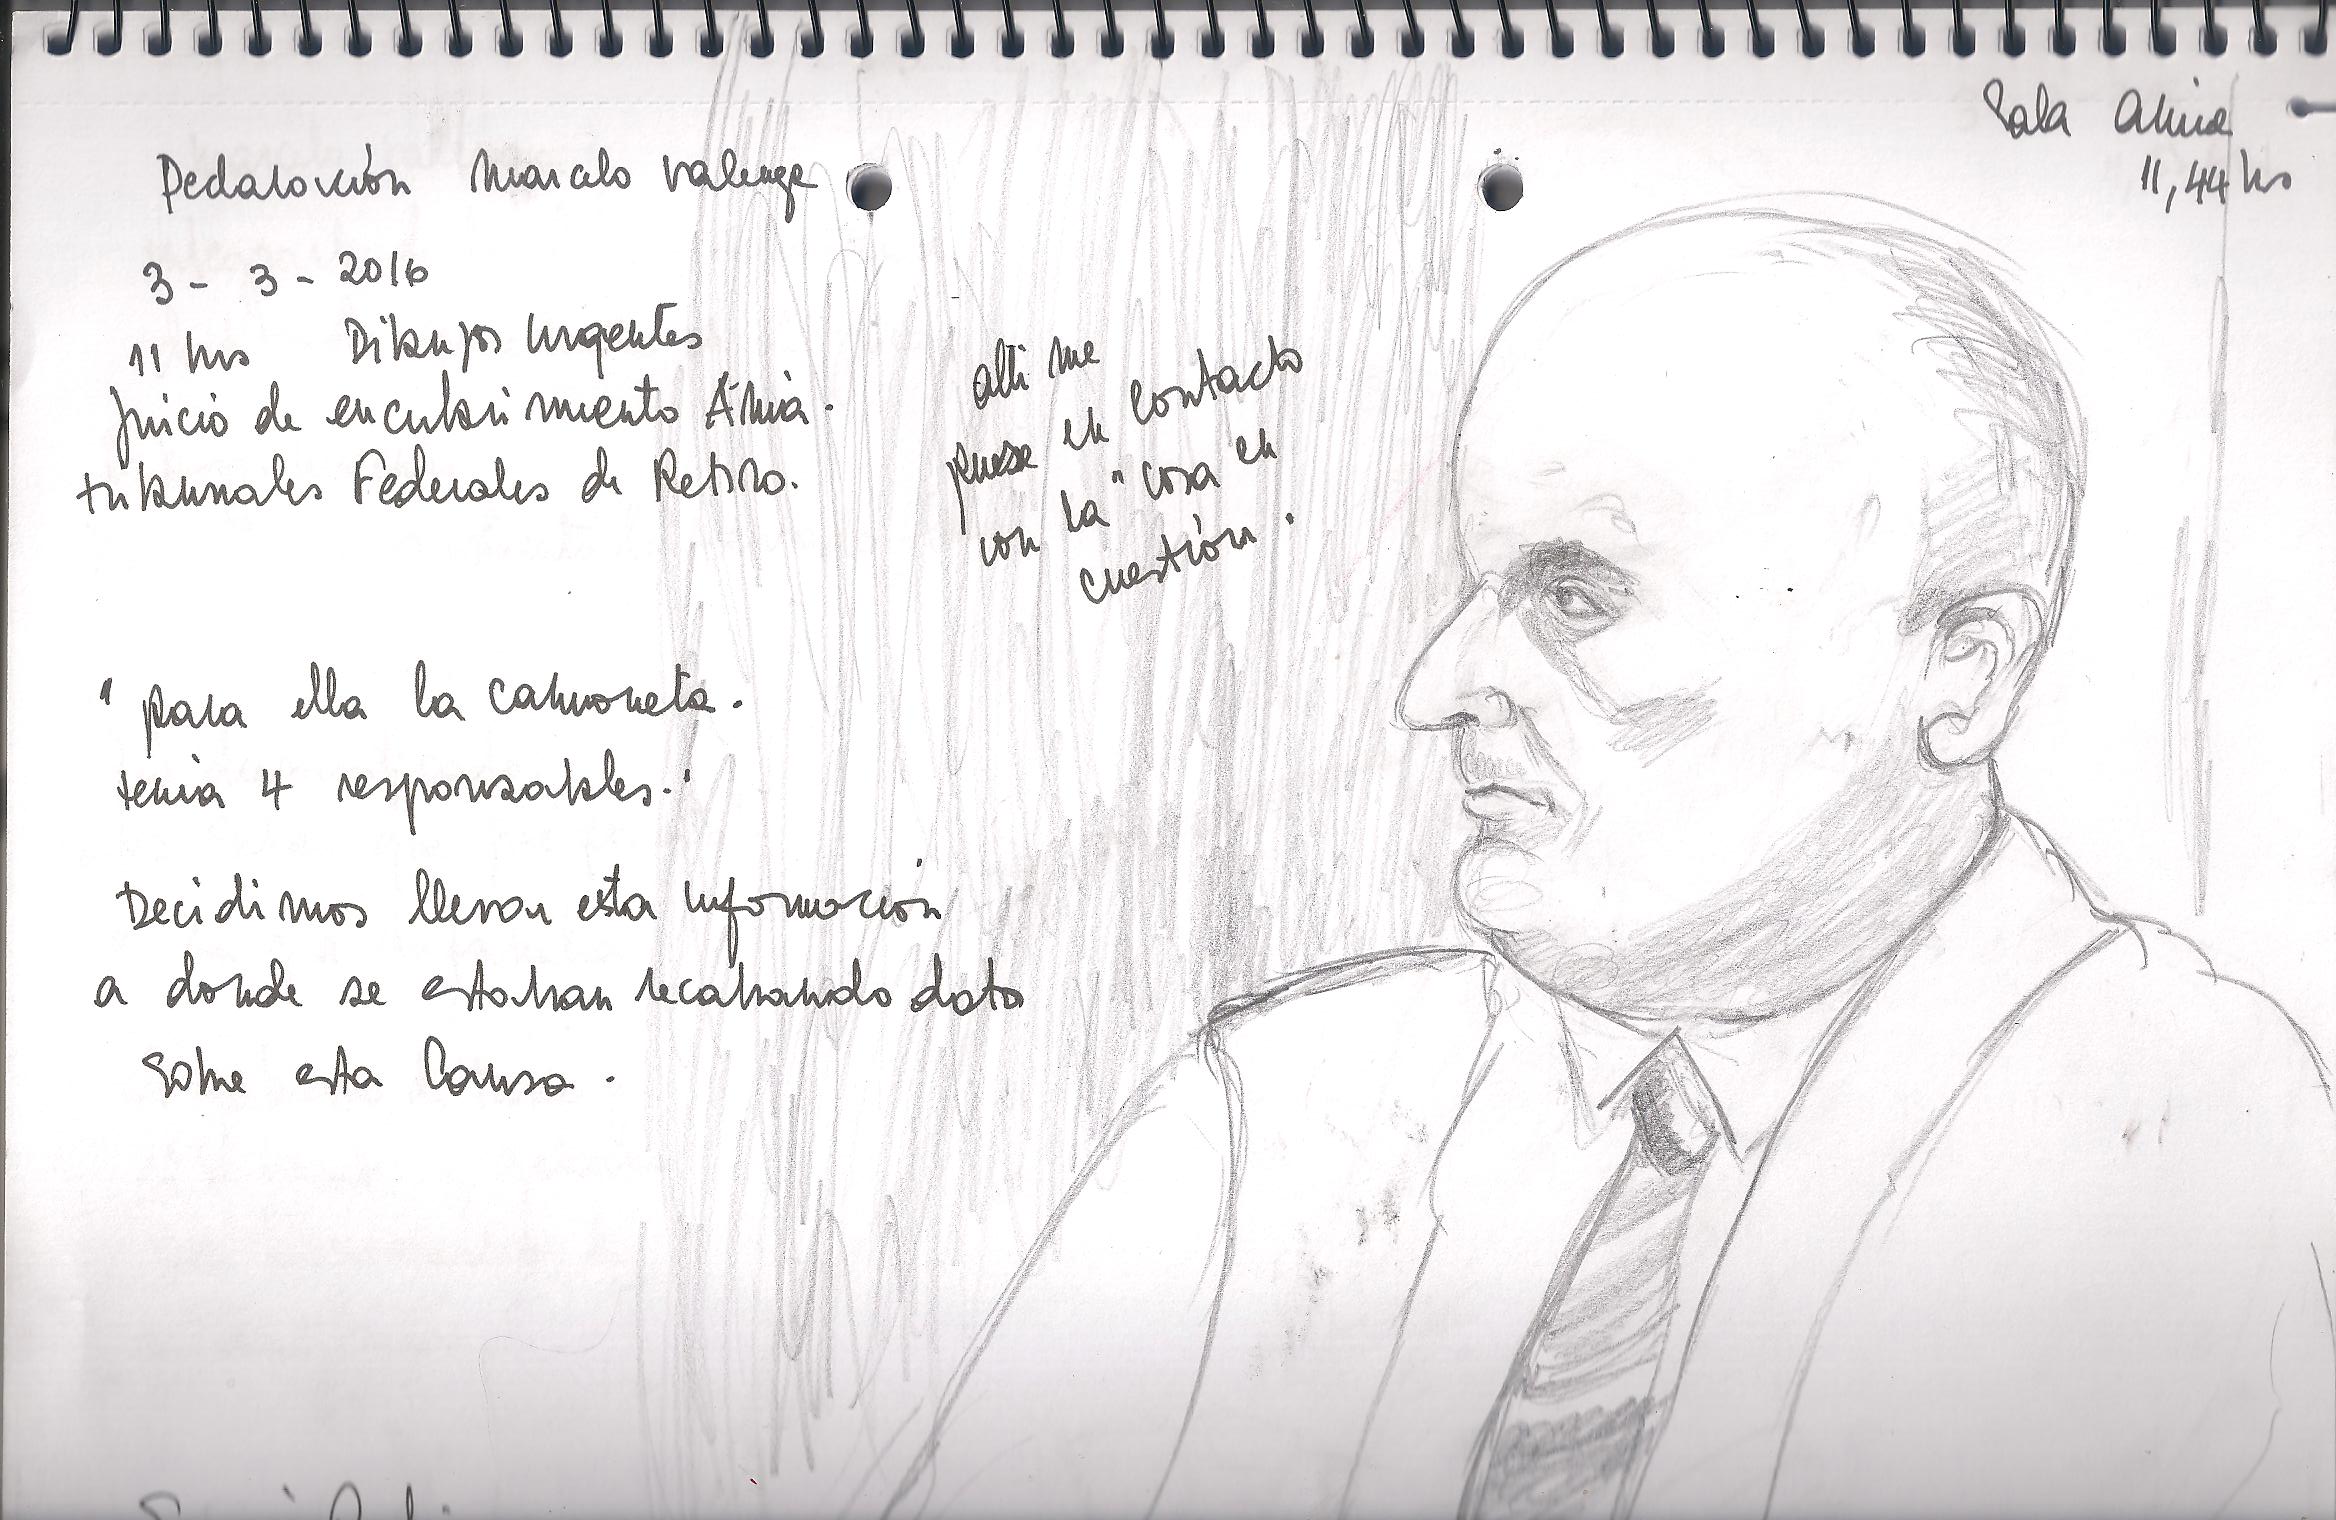 Sala Amia
11,44 hs
Declaración Marcelo Valenge
3 - 3 - 2016
11 hrs Dibujos Urgentes
Juicio de encubrimiento Amia.
tribunales Federales de Retiro.
alli me
puse en contacto
con la "cosa en
cuestión".
"para ella la camioneta.
tenia 4 responsables."
Decidimos llevar esta información
a donde se estaban recabando dato
sobre esta Causa.